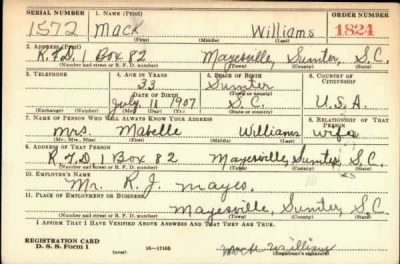 SERIAL NUMBER 1. NAME (Print) ORDER NUMBER
1572 Mack Williams 1824
(First) (Middle) (Last)
2. ADDRESS (Print)
R.F.D 1 Box 82 Mayesville, Sumter, S.C.
(Number and street or R. F. D. number) (Town) (County) (State)
3. TELEPHONE 4. AGE IN YEARS 5. PLACE OF BIRTH 6. COUNTRY OF CITIZENSHIP
33 Sumter
DATE OF BIRTH (Town or county)
July 11 1907 S.C. U.S.A.
(Exchange) (Number) (Mo.) (Day) (Yr.) (State or country)
7. NAME OF PERSON WHO WILL ALWAYS KNOW YOUR ADDRESS 8. RELATIONSHIP OF THAT PERSON
Mrs. Mabelle Williams Wife
(Mr., Mrs., Miss) (First) (Middle) (Last)
9. ADDRESS OF THAT PERSON
R.F.D 1 Box 82 Mayesville, Sumter, S.C.
(Number and street or R. F. D. number) (Town) (County) (State)
10. EMPLOYER'S NAME
Mr. R. J. Mayes
11. PLACE OF EMPLOYMENT OR BUSINESS
Mayesville, Sumter, S.C.
(Number and street or R. F. D. number) (Town) (County) (State)
I AFFIRM THAT I HAVE VERIFIED ABOVE ANSWERS AND THAT THEY ARE TRUE.
REGISTRATION CARD
D. S. S. Form 1 (over) 16—17105 Mack Williams
(Registrant's signature)